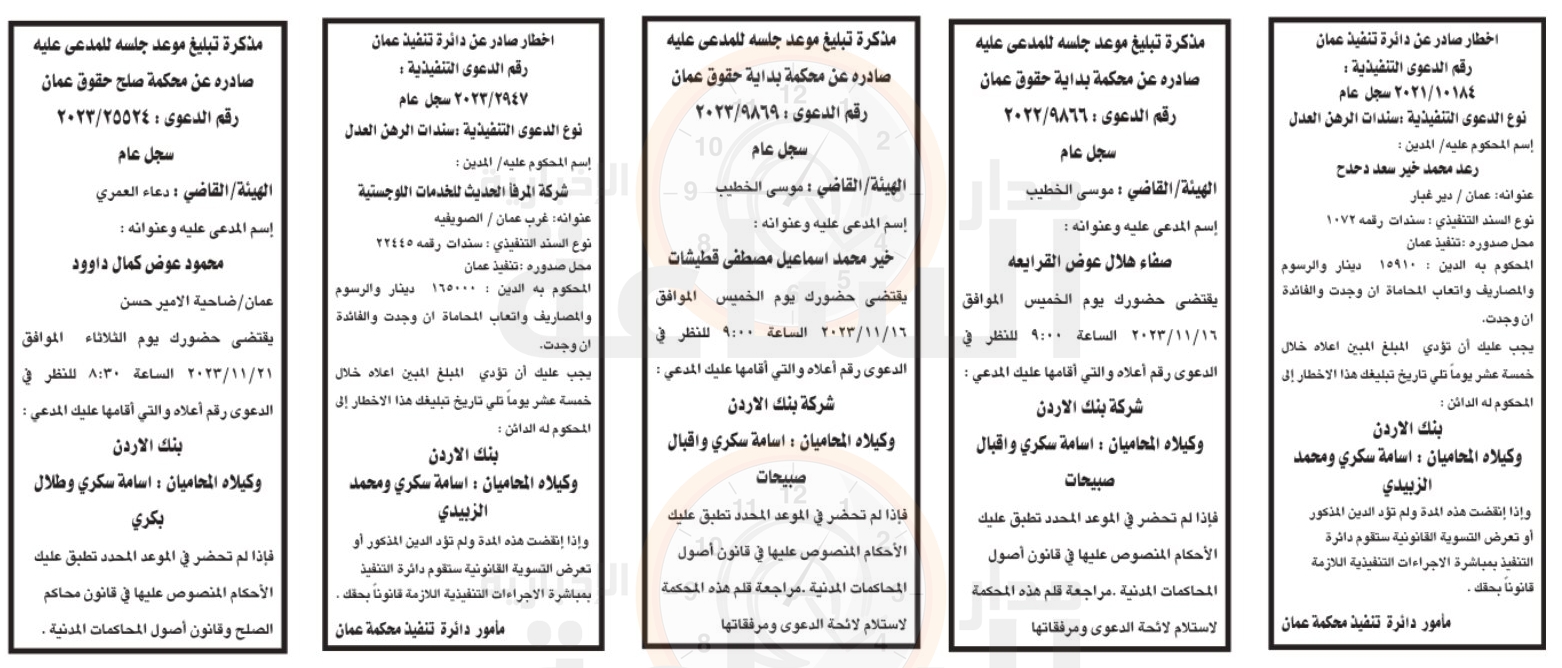 اخطار صادر عن دائرة تنفيذ عمان
رقم الدعوى التنفيذية :
٢٠٢١/١٠١٨٤ سجل عام
نوع الدعوى التنفيذية :سندات الرهن العدل
إسم المحكوم عليه/ المدين :
رعد محمد خير سعد دحدح
عنوانه: عمان / دير غبار
نوع السند التنفيذي : سندات رقمه ١٠٧٢
محل صدوره :تنفيذ عمان
المحكوم به الدين : ١٥٩١٠ دينار والرسوم
والمصاريف واتعاب المحاماة ان وجدت والفائدة
ان وجدت.
يجب عليك أن تؤدي المبلغ المبين اعلاه خلال
خمسة عشر يوماً تلي تاريخ تبليغك هذا الاخطار إلى
المحكوم له الدائن :
بنك الاردن
وكيلاه المحاميان : اسامة سكري ومحمد
الزبيدي
وإذا إنقضت هذه المدة ولم تؤد الدين المذكور
أو تعرض التسوية القانونية ستقوم دائرة
التنفيذ بمباشرة الاجراءات التنفيذية اللازمة
قانوناً بحقك .
مأمور دائرة تنفيذ محكمة عمان
مذكرة تبليغ موعد جلسه للمدعى عليه
صادره عن محكمة بداية حقوق عمان
رقم الدعوى : ٢٠٢٢/٩٨٦٦
سجل عام
الهيئة/القاضي : موسى الخطيب
إسم المدعى عليه وعنوانه :
صفاء هلال عوض القرايعه
يقتضي حضورك يوم الخميس الموافق
٢٠٢٣/١١/١٦ الساعة ٩:٠٠ للنظر في
الدعوى رقم أعلاه والتي أقامها عليك المدعي :
شركة بنك الاردن
وكيلاه المحاميان : اسامة سكري واقبال
صبيحات
فإذا لم تحضر في الموعد المحدد تطبق عليك
الأحكام المنصوص عليها في قانون أصول
المحاكمات المدنية .مراجعة قلم هذه المحكمة
لاستلام لائحة الدعوى ومرفقاتها
مذكرة تبليغ موعد جلسه للمدعى عليه
صادره عن محكمة بداية حقوق عمان
رقم الدعوى : ٢٠٢٣/٩٨٦٩
سجل عام
الهيئة/القاضي : موسى الخطيب
إسم المدعى عليه وعنوانه :
خير محمد اسماعيل مصطفى قطيشات
يقتضي حضورك يوم الخميس الموافق
٢٠٢٣/١١/١٦ الساعة ٩:٠٠ للنظر في
الدعوى رقم أعلاه والتي أقامها عليك المدعي :
شركة بنك الاردن
وكيلاه المحاميان : اسامة سكري واقبال
صبيحات
فإذا لم تحضر في الموعد المحدد تطبق عليك
الأحكام المنصوص عليها في قانون أصول
المحاكمات المدنية .مراجعة قلم هذه المحكمة
لاستلام لائحة الدعوى ومرفقاتها
اخطار صادر عن دائرة تنفيذ عمان
رقم الدعوى التنفيذية :
٢٠٢٣/٢٩٤٧ سجل عام
نوع الدعوى التنفيذية :سندات الرهن العدل
إسم المحكوم عليه/ المدين :
شركة المرفأ الحديث للخدمات اللوجستية
عنوانه: غرب عمان / الصويفيه
نوع السند التنفيذي : سندات رقمه ٢٢٤٤٥
محل صدوره :تنفيذ عمان
المحكوم به الدين : ١٦٥٠٠٠ دينار والرسوم
والمصاريف واتعاب المحاماة ان وجدت والفائدة
ان وجدت.
يجب عليك أن تؤدي المبلغ المبين اعلاه خلال
خمسة عشر يوماً تلي تاريخ تبليغك هذا الاخطار إلى
المحكوم له الدائن :
بنك الاردن
وكيلاه المحاميان : اسامة سكري ومحمد
الزبيدي
وإذا إنقضت هذه المدة ولم تؤد الدين المذكور أو
تعرض التسوية القانونية ستقوم دائرة التنفيذ
بمباشرة الاجراءات التنفيذية اللازمة قانوناً بحقك .
مأمور دائرة تنفيذ محكمة عمان
مذكرة تبليغ موعد جلسه للمدعى عليه
صادره عن محكمة صلح حقوق عمان
رقم الدعوى : ٢٠٢٣/٢٥٥٢٤
سجل عام
الهيئة/القاضي : دعاء العمري
إسم المدعى عليه وعنوانه :
محمود عوض كمال داوود
عمان/ضاحية الامير حسن
يقتضي حضورك يوم الثلاثاء الموافق
٢٠٢٣/١١/٢١ الساعة ٨:٣٠ للنظر في
الدعوى رقم أعلاه والتي أقامها عليك المدعي :
بنك الاردن
وكيلاه المحاميان : اسامة سكري وطلال
بكري
فإذا لم تحضر في الموعد المحدد تطبق عليك
الأحكام المنصوص عليها في قانون محاكم
الصلح وقانون أصول المحاكمات المدنية .